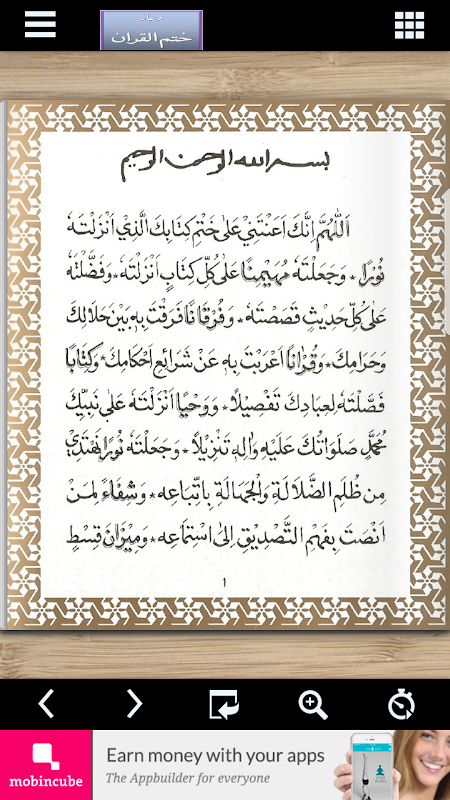 دعاء
ختم القران
بسم الله الرحمن الرحيم
اَللّٰهُمَّ اِنَّكَ اَعَنْتَنِيْ عَلٰى خَتْمِ كِتَابِكَ الَّذِيْ اَنْزَلْتَهٗ
نُوْرًا * وَجَعَلْتَهٗ مُهَيْمِنًا عَلٰى كُلِّ كِتَابٍ اَنْزَلْتَهٗ * وَفَضَّلْتَهٗ
عَلٰى كُلِّ حَدِيْثٍ قَصَصْتَهٗ * وَفُرْقَانًا فَرَقْتَ بِهٖ بَيْنَ حَلَالِكَ
وَحَرَامِكَ * وَقُرْاٰنًا اَعْرَبْتَ بِهٖ عَنْ شَرَائِعِ اَحْكَامِكَ * وَكِتَابًا
فَصَّلْتَهٗ لِعِبَادِكَ تَفْصِيْلًا * وَوَحْيًا اَنْزَلْتَهٗ عَلٰى نَبِيِّكَ
مُحَمَّدٍ صَلَوَاتُكَ عَلَيْهِ وَاٰلِهٖ تَنْزِيْلًا * وَجَعَلْتَهٗ نُوْرًا يَهْتَدِيْ
مِنْ ظُلَمِ الضَّلَالَةِ وَالْجَهَالَةِ بِاتِّبَاعِهٖ * وَشِفَاءً لِمَنْ
اَنْصَتَ بِفَهْمِ التَّصْدِيْقِ اِلٰى اسْتِمَاعِهٖ * وَمِيْزَانَ قِسْطٍ
١
mobincube
Earn money with your apps
The Appbuilder for everyone